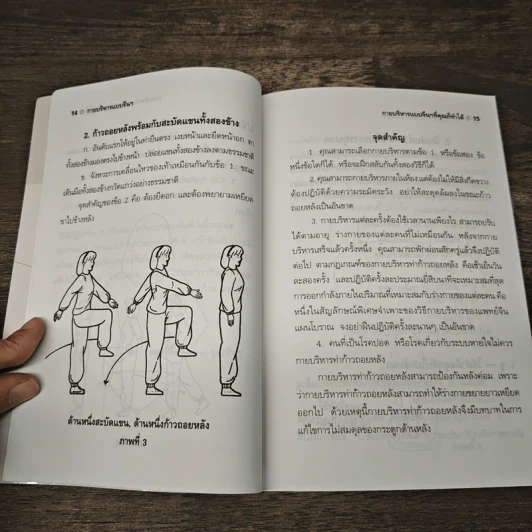 14 กายบริหารแบบจีนฯ
2. ก้าวถอยหลังพร้อมกับสะบัดแขนทั้งสองข้าง
ก. อันดับแรกให้อยู่ในท่ายืนตรง เงยหน้าและยืดหน้าอก ตา
ทั้งสองข้างมองตรงไปข้างหน้า ปล่อยแขนทั้งสองข้างลงตามธรรมชาติ
ข. จังหวะการเคลื่อนไหวของเท้าเหมือนกันกับข้อ 1. ขณะ
เดินมือทั้งสองข้างแกว่งอย่างธรรมชาติ
จุดสำคัญของข้อ 2 คือ ต้องยืดอก และต้องพยายามเหยียด
ขาไปข้างหลัง
ด้านหนึ่งสะบัดแขน, ด้านหนึ่งก้าวถอยหลัง
ภาพที่ 3
กายบริหารแบบจีนฯที่คุณก็ทำได้ 15
จุดสำคัญ
1. คุณสามารถเลือกกายบริหารตามข้อ 1. หรือข้อสอง ข้อ
หนึ่งข้อใดก็ได้ หรือจะฝึกสลับกันทั้งสองวิธีก็ได้
2. คุณสามารถกายบริหารภายในห้อง แต่ต้องไม่ให้มีสิ่งกีดขวาง
ต้องปฏิบัติด้วยความระมัดระวัง อย่าให้สะดุดล้มลงในขณะก้าว
ถอยหลังเป็นอันขาด
3. กายบริหารแต่ละครั้งต้องใช้เวลานานเพียงไร สามารถปรับ
ได้ตามอายุ ร่างกายของแต่ละคนที่ไม่เหมือนกัน หลังจากกาย
บริหารเสร็จแล้วครั้งหนึ่ง คุณสามารถพักผ่อนสักครู่แล้วจึงปฏิบัติ
ต่อไป ตามกฎเกณฑ์ของกายบริหารท่าก้าวถอยหลัง คือเช้าเย็นวัน
ละสองครั้ง และปฏิบัติครั้งละประมาณยี่สิบนาทีจะเหมาะสมที่สุด
การออกกำลังกายในปริมาณที่เหมาะสมกับร่างกายของแต่ละคน คือ
หนึ่งในสัญลักษณ์พิเศษจำเพาะของวิธีกายบริหารของแพทย์จีน
แผนโบราณ จงอย่าฝืนปฏิบัติครั้งละนานๆ เป็นอันขาด
4. คนที่เป็นโรคปอด หรือโรคเกี่ยวกับระบบหายใจไม่ควร
กายบริหารท่าก้าวถอยหลัง
กายบริหารท่าก้าวถอยหลังสามารถป้องกันหลังค่อม เพราะ
ว่ากายบริหารท่าก้าวถอยหลังสามารถทำให้ร่างกายขยายยาวเหยียด
ออกไป ด้วยเหตุนี้กายบริหารท่าก้าวถอยหลังจึงมีบทบาทในการ
แก้ไขการไม่สมดุลของกระดูกด้านหลัง